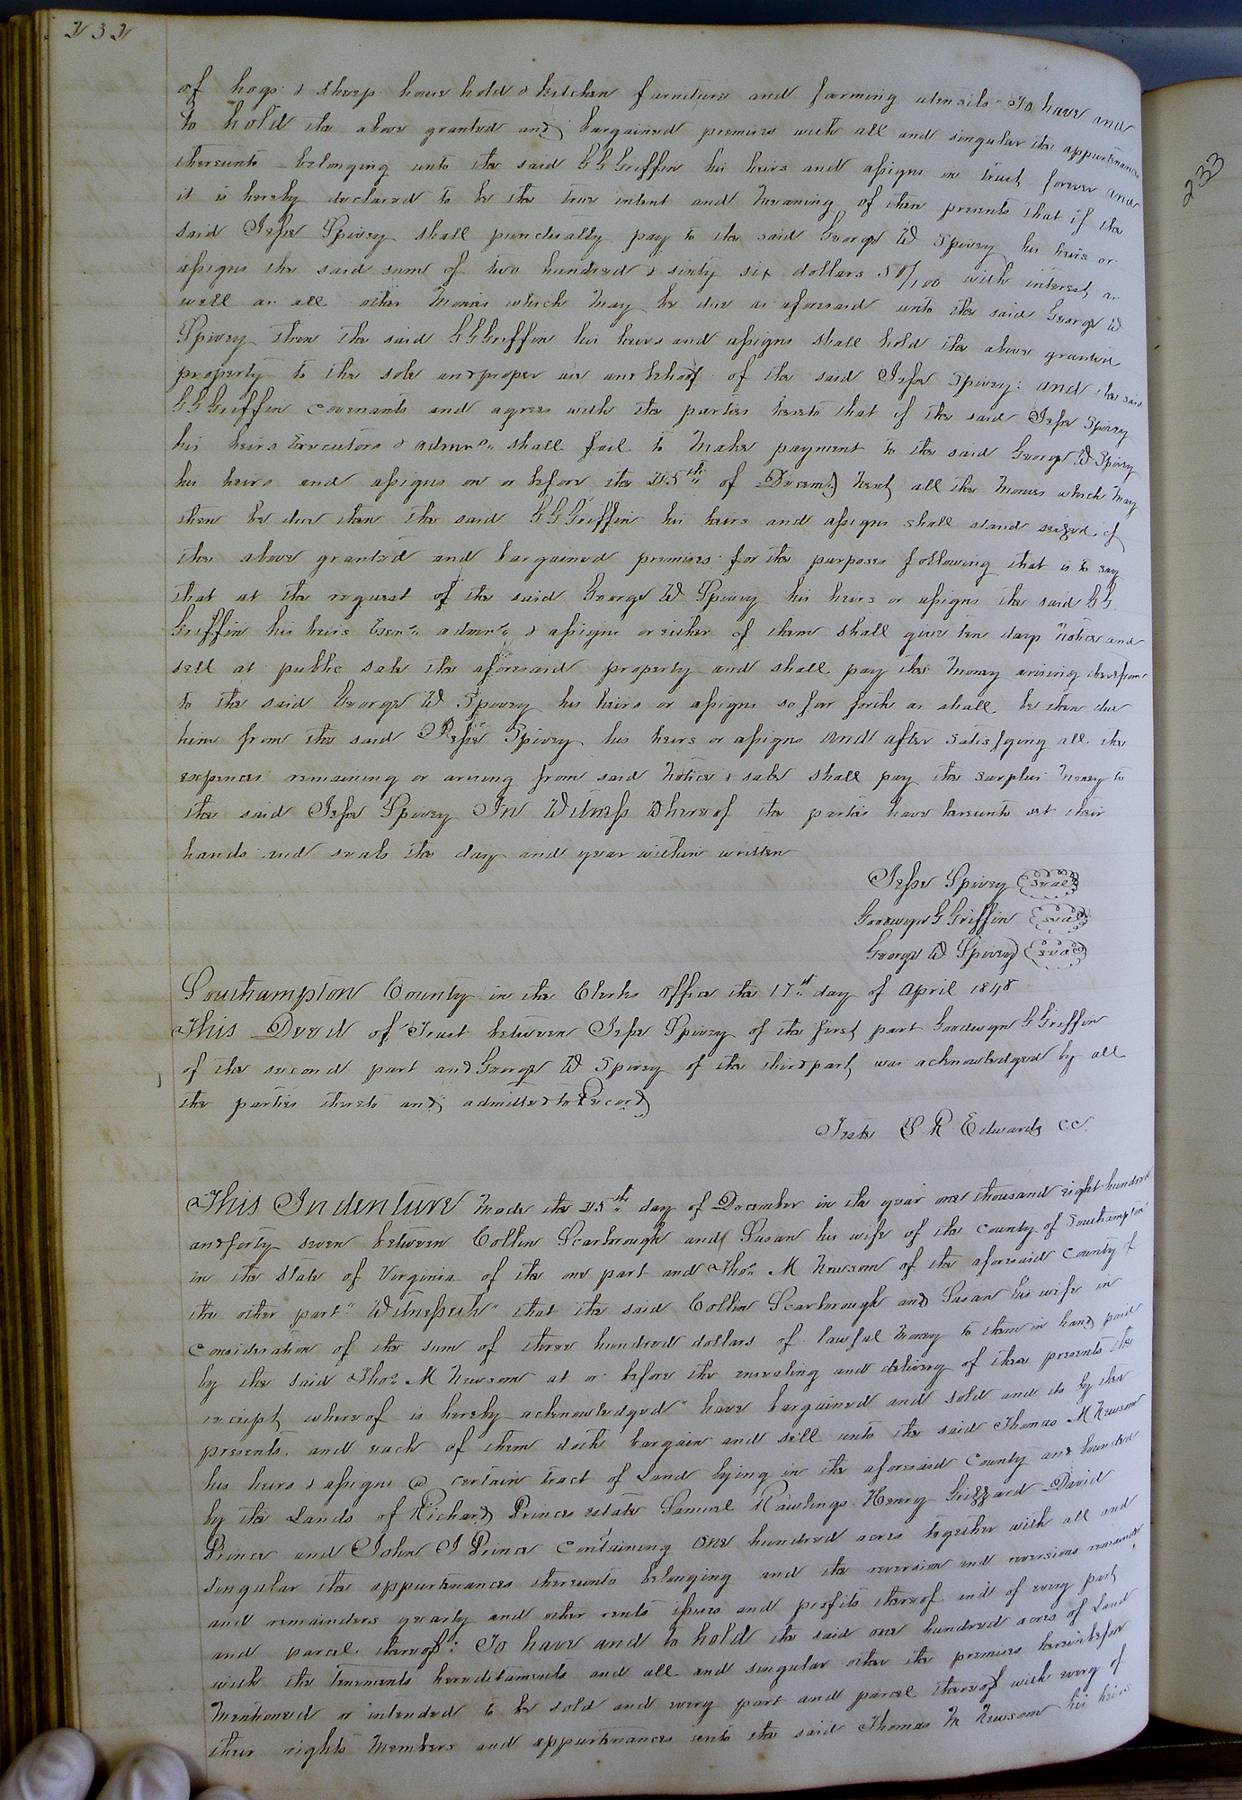 232
of hogs & sheep house hold & kitchen furniture and farming utensils To have and
to hold the above granted and bargained premises with all and singular the appurtenances
thereunto belonging unto the said G G Griffin his heirs and assigns in trust forever and
it is hereby declared to be the true intent and meaning of then presents that if the
said Jesse Spivey shall punctually pay to the said George W Spivey his heirs or
assigns the said sum of two hundred & sixty six dollars 58/100 with interest as
well as all other monies which may be due as aforesaid unto the said George W
Spivey then the said G G Griffin his heirs and assigns shall hold the above granted
property to the sole and proper use and behoof of the said Jesse Spivey: and the said
G G Griffin covenants and agrees with the parties hereto that if the said Jesse Spivey
his heirs Executors & admrs shall fail to make payment to the said George W Spivey
his heirs and assigns on or before the 25th of Decemb next all the monies which may
then be due then the said G G Griffin his heirs and assigns shall stand seized of
the above granted and bargained premises for the purposes following that is to say
that at the request of the said George W Spivey his heirs or assigns the said G G
Griffin his heirs Exers admrs & assigns or either of them shall give ten days notice and
sell at public sale the aforesaid property and shall pay the money arising therefrom
to the said George W Spivey his heirs or assigns so far forth as shall be then due
him from the said Jesse Spivey his heirs or assigns and after satisfying all the
expences remaining or arising from said notice & sale shall pay the surplus money to
the said Jesse Spivey In Witness Whereof the parties have hereunto set their
hands and seals the day and year within written
Jesse Spivey (seal)
Goodwyn G Griffin (seal)
George W Spivey (seal)
Southampton County in the Clerks office the 17th day of April 1848
This Deed of Trust between Jesse Spivey of the first part Goodwyn G Griffin
of the second part and George W Spivey of the third part was acknowledged by all
the parties thereto and admitted to Record
Teste L R Edwards CC
This Indenture made the 25th day of December in the year one thousand eight hundred
and forty seven between Collin Scarborough and Susan his wife of the county of Southampton
in the State of Virginia of the one part and Thos M Newsom of the aforesaid county of
the other part "Witnesseth" that the said Collin Scarborough and Susan his wife in
consideration of the sum of three hundred dollars of lawful money to them in hand paid
by the said Thos M Newsom at or before the ensealing and delivery of these presents the
receipt whereof is hereby acknowledged have bargained and sold and do by these
presents and each of them doth bargain and sell unto the said Thomas M Newsom
his heirs & assigns @ certain tract of Land lying in the aforesaid County and bounded
by the Lands of Richard Princes estate Samuel Rawlings Henry Grizzard David
Prince and John J Prince containing one hundred acres together with all and
singular the appurtenances thereunto belonging and the reversion and reversions remainder
and remainders yearly and other rents issues and profits thereof and of every part
and parcel thereof: To have and to hold the said one hundred acres of Land
with the tenements hereditaments and all and singular other the premises hereinbefore
mentioned or intended to be sold and every part and parcel thereof with every of
their rights members and appurtenances unto the said Thomas M Newsom his heirs
233